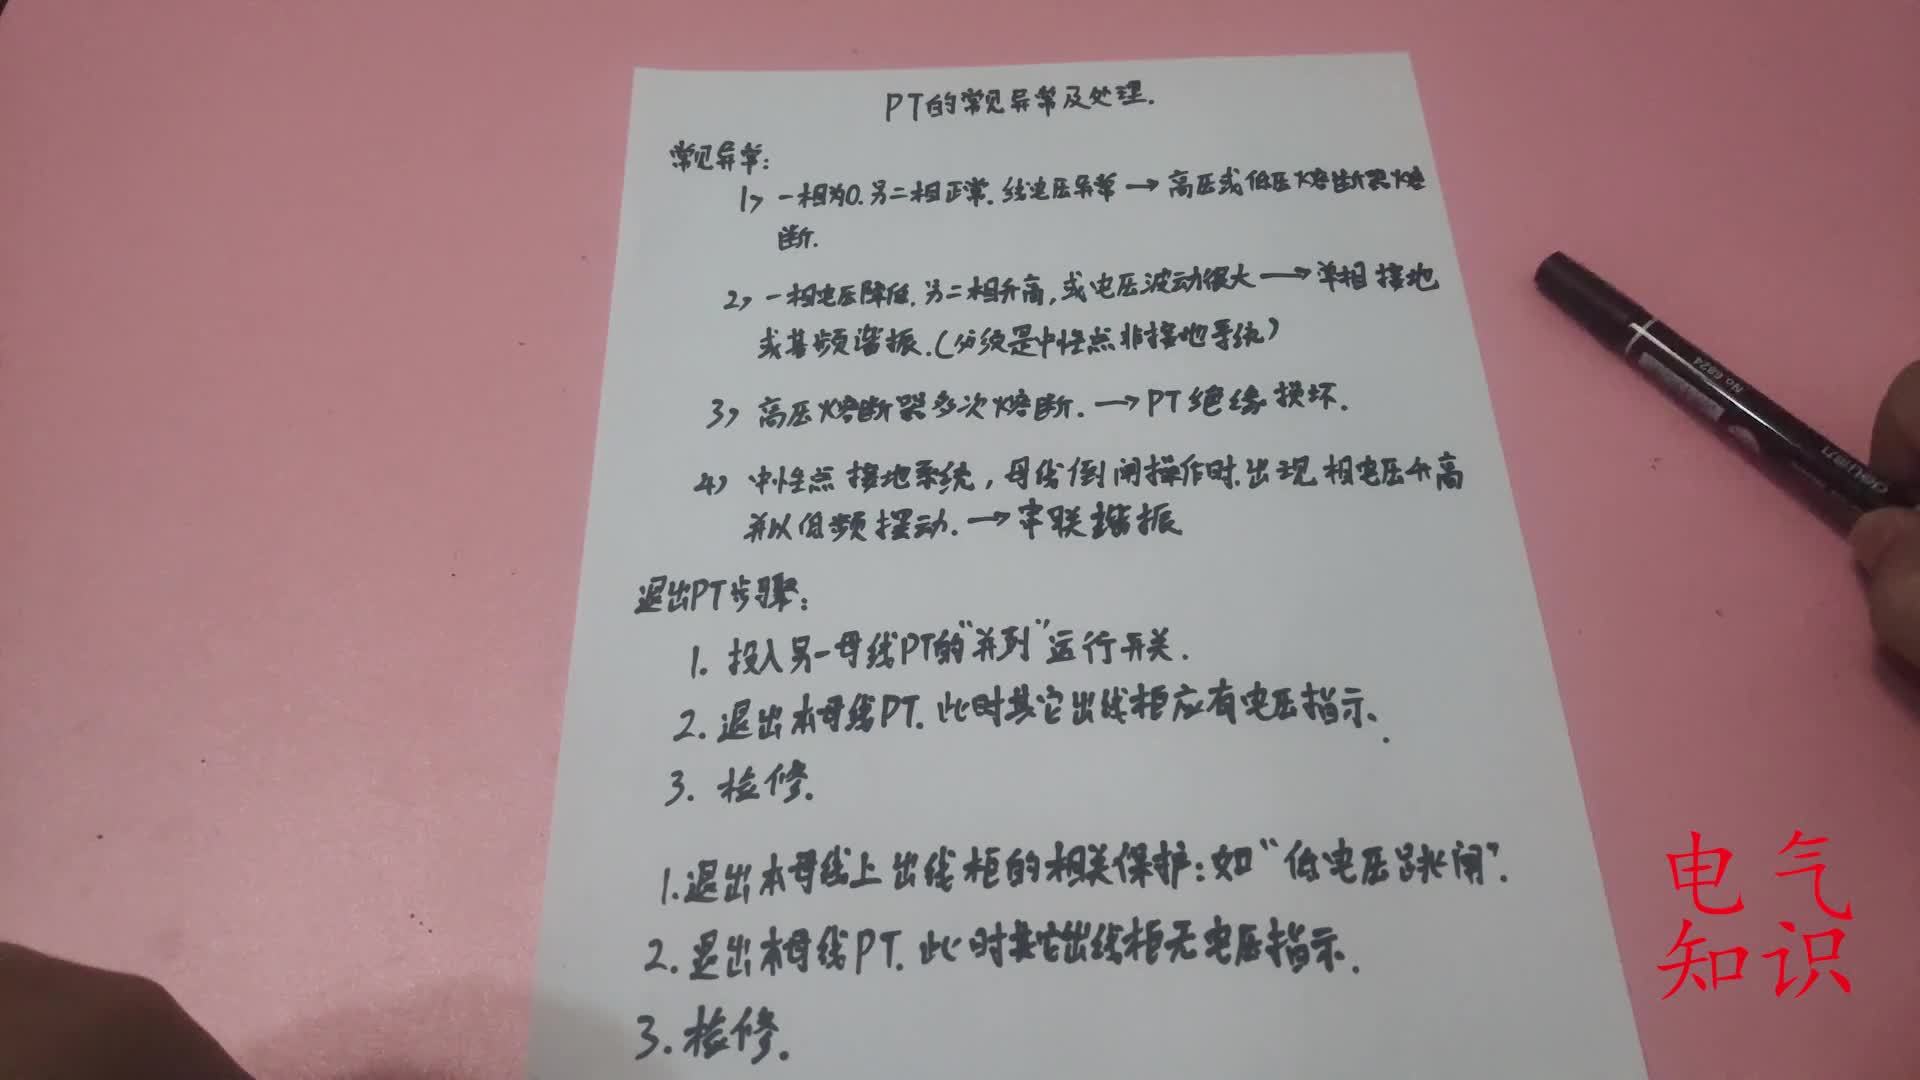 PT的常见异常及处理.
常见异常:
1> 一相为0.另二相正常.线电压异常→高压或低压熔断器熔
断.
2> 一相电压降低.另二相升高,或电压波动很大→单相接地
或基频谐振.(必须是中性点非接地系统)
3> 高压熔断器多次熔断.→PT绝缘损坏.
4> 中性点接地系统,母线倒闸操作时.出现相电压升高
并以低频摆动.→串联谐振
退出PT步骤:
1. 投入另一母线PT的"并列"运行开关.
2. 退出本母线PT.此时其它出线柜应有电压指示.
3. 检修.
1.退出本母线上出线柜的相关保护:如"低电压跳闸".
2.退出本母线PT.此时其它出线柜无电压指示.
3.检修.
No 6824
deli
电气
知识